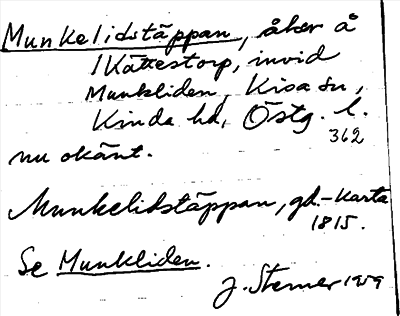 Munkelidstäppan, åker å
1 Kättestorp, invid
Munkliden, Kisa sn,
Kinda hd, Östg. l.
362
nu okänt.
Munkelidstäppan, gd.-Karta
1815.
Se Munkliden.
J. Sterner 1959